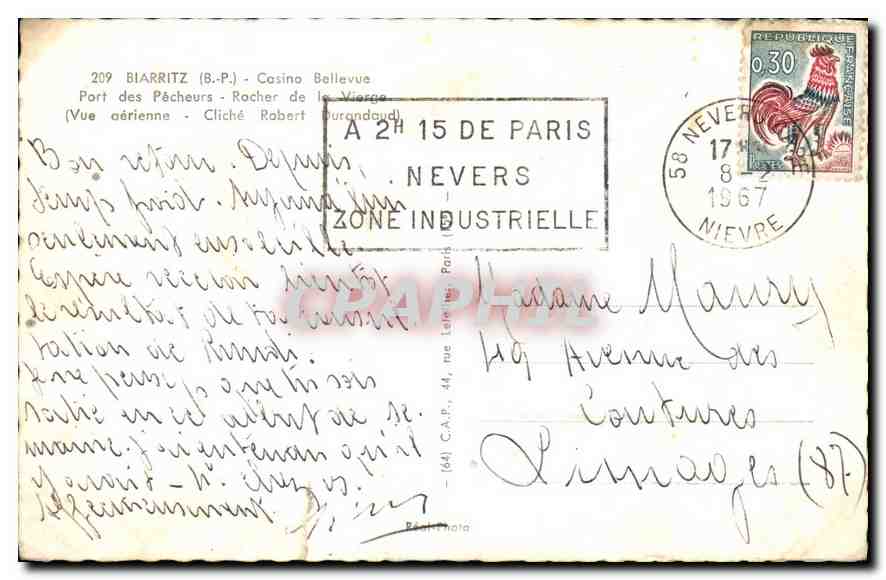 209 BIARRITZ (B.-P.) - Casino Bellevue
Port des Pêcheurs - Rocher de la Vierge
(Vue aérienne - Cliché Robert Durandaud)
A 2H 15 DE PARIS
NEVERS
ZONE INDUSTRIELLE
58 NEVERS
17H
8-2
1967
NIEVRE
REPUBLIQUE FRANÇAISE
0,30
POSTES
Bon retour. Depuis,
temps froid.
seulement ensoleillé
Espère recevoir bientôt
le résultat de ta consul
tation de lundi.
Je ne pense pas que tu sois
sortie en ce début de se-
maine.
Affectueusement
Madame Maury
49 Avenue des
Coutures
Limoges (87)
(64) C.A.P., 44, rue Letellier, Paris (15e)
Réal-Photo
CPAPHIL